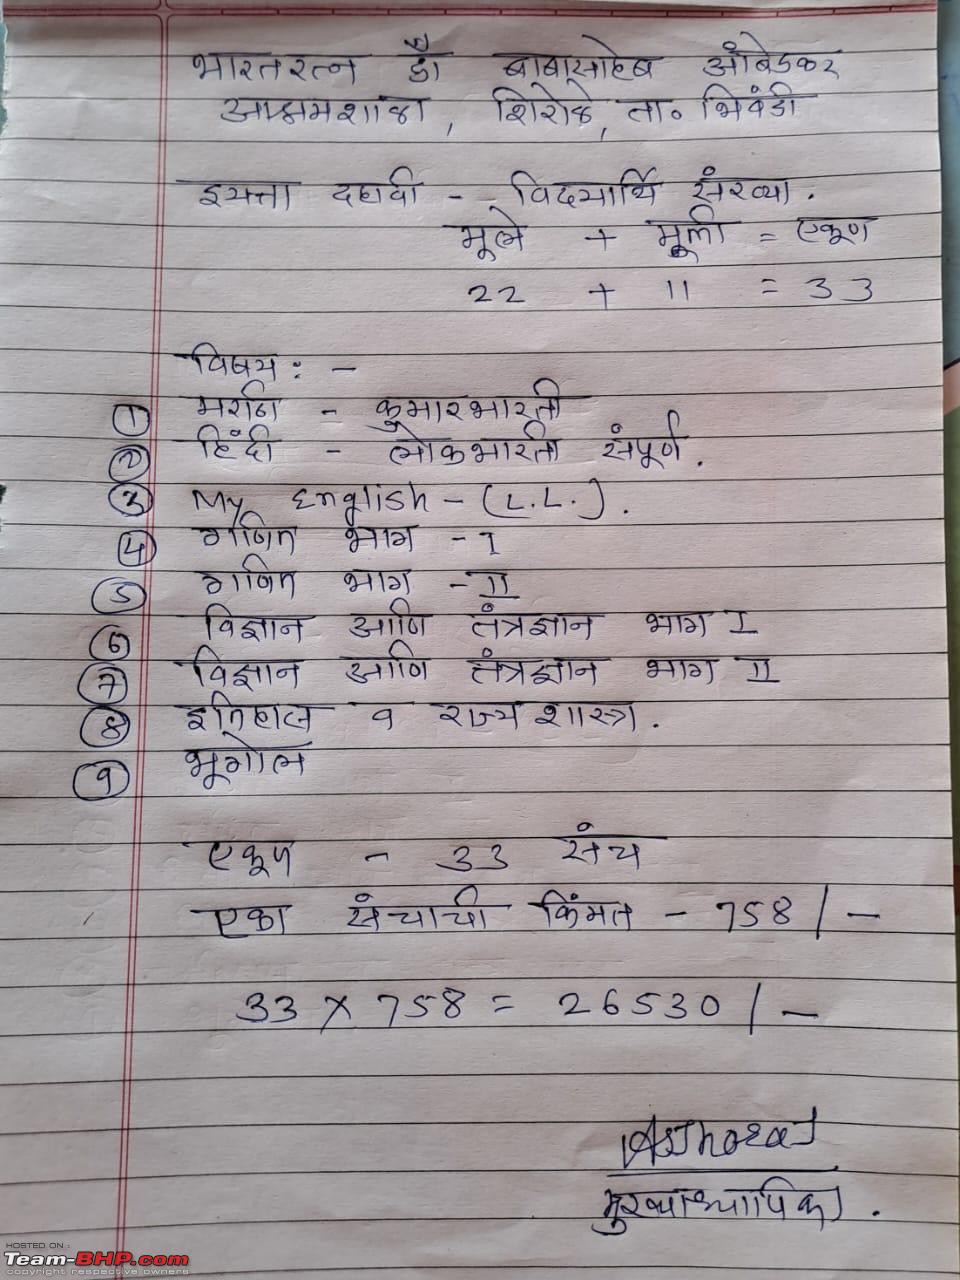 भारतरत्न डॉ बाबासाहेब आंबेडकर
आश्रमशाळा, शिरोळे, ता० भिवंडी
इयत्ता दहावी - विदयार्थि संख्या.
मूले + मूली = एकूण
22 + 11 = 33
विषय: -
① मराठी - कुमारभारती
② हिंदी - लोकभारती संपूर्ण.
③ My English - (L.L.).
④ गणित भाग - I
⑤ गणित भाग - II
⑥ विज्ञान आणि तंत्रज्ञान भाग I
⑦ विज्ञान आणि तंत्रज्ञान भाग II
⑧ इतिहास व राज्यशास्त्र.
⑨ भूगोल
एकूण - 33 संच
एका संचाची किंमत - 758/-
33 × 758 = 26530/-
मुख्याध्यापिका.
HOSTED ON :
Team-BHP.com
copyright respective owners